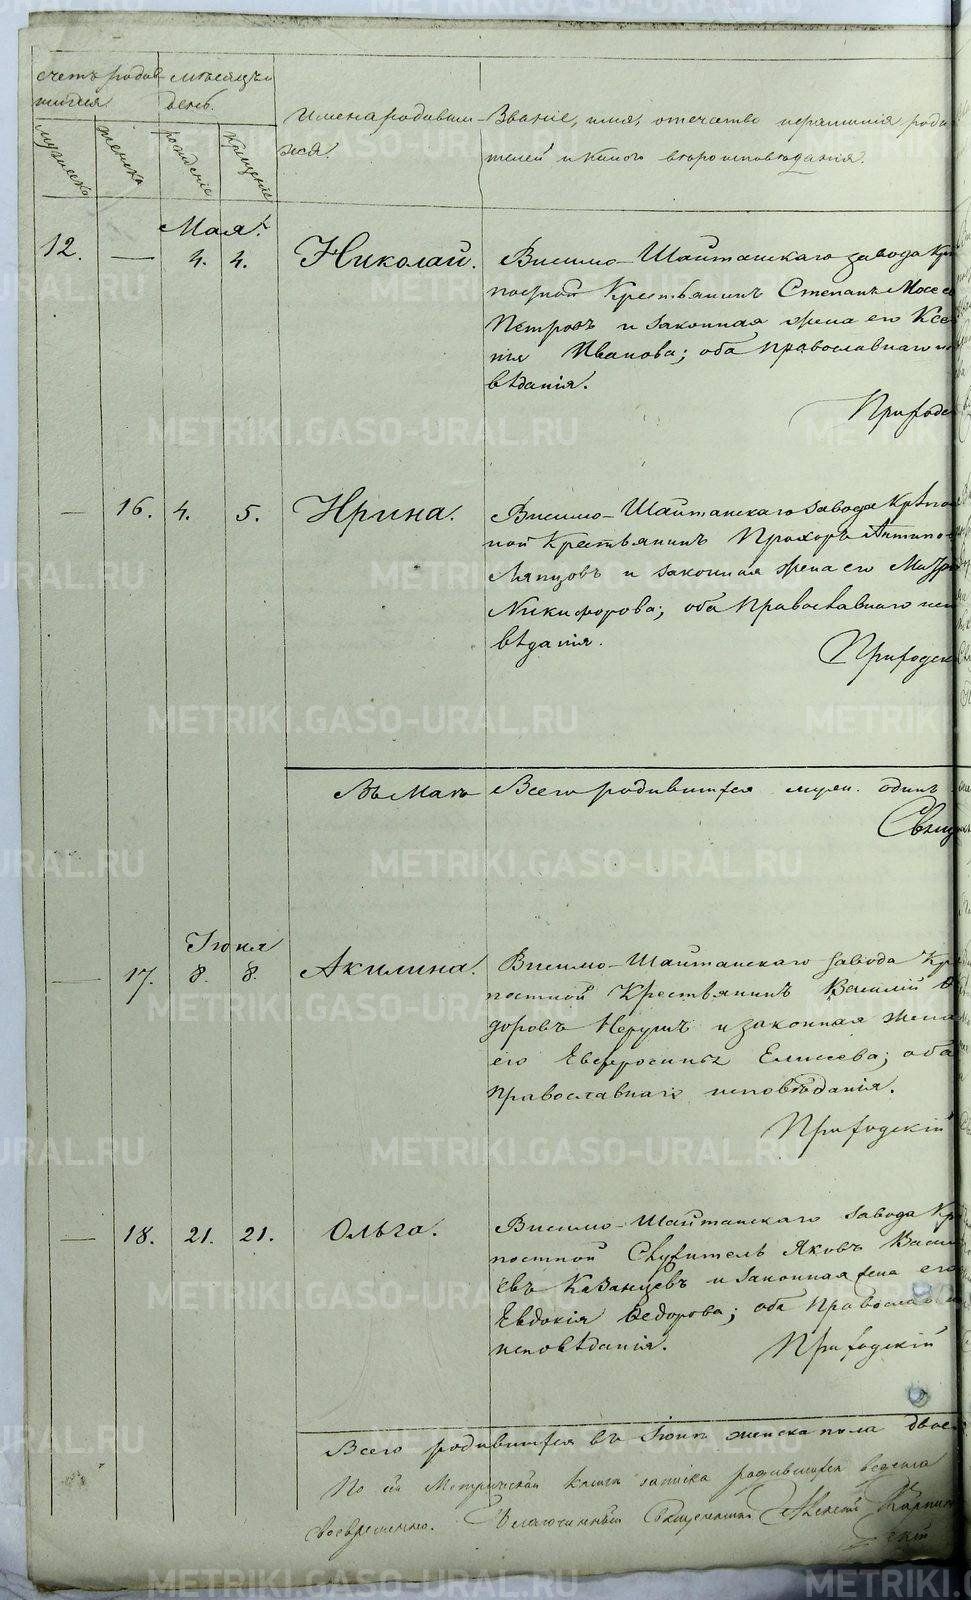 счетъ родив- мѣсяцъ и
шихся день.
Имена родивших-
ся.
Званіе, имя, отечество и фамилія роди-
телей и какого вѣроисповѣданія.
мужеска женска рожденіе крещеніе
Мая.
12. — 4. 4. Николай. Висимо-Шайтанскаго завода Крѣ
постной Крестьянинъ Степанъ Моѳее
Петровъ и законная жена его Ксе
нія Иванова; оба Православнаго ис
вѣданія.
Приходс
— 16. 4. 5. Ирина. Висимо-Шайтанскаго завода Крѣпос
ной Крестьянинъ Прохоръ Антипо
Ляпцовъ и законная жена его Матр
Никифорова; оба Православнаго исп
вѣданія.
Приходск
Въ Маѣ Всего родившихся муж. одинъ
Свящ
Іюня
— 17. 8. 8. Акилина. Висимо-Шайтанскаго завода Кр
постной Крестьянинъ Василій Ѳ
доровъ и законная жена
его Евфросинья Елисеева; оба
Православнаго исповѣданія.
Приходскій
— 18. 21. 21. Ольга. Висимо-Шайтанскаго завода Кр
постной Служитель Яковъ Васил
евъ Казанцевъ и законная жена его
Евдокія Ѳедорова; оба Православна
исповѣданія. Приходскій
Всего родившихся въ Іюнѣ женска пола двое
По сей Метрической книги записка родившихся ведена
своевременно. Благочинный Священникъ Алексій Карпин
скій
METRIKI.GASO-URAL.RU